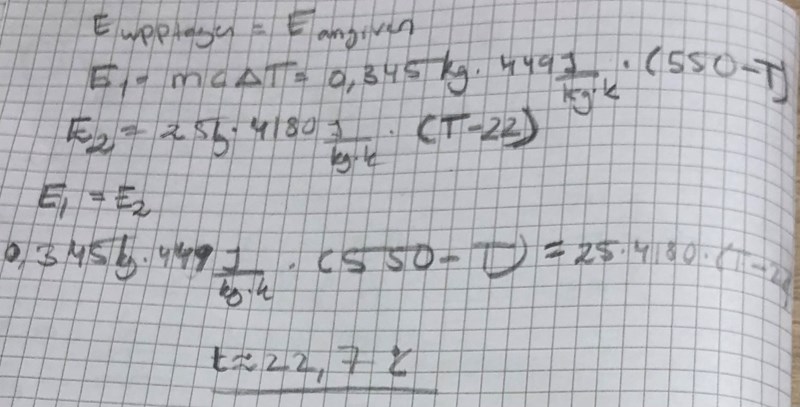 E upptagen = E angiven
E₁ = mcΔT = 0,345 kg · 449 J/kg·k · (550-T)
E₂ = 25kg · 4180 J/kg·k · (T-22)
E₁ = E₂
0,345kg · 449 J/kg·k · (550 - T) = 25·4180·(T-22)
t≈22,7 °C